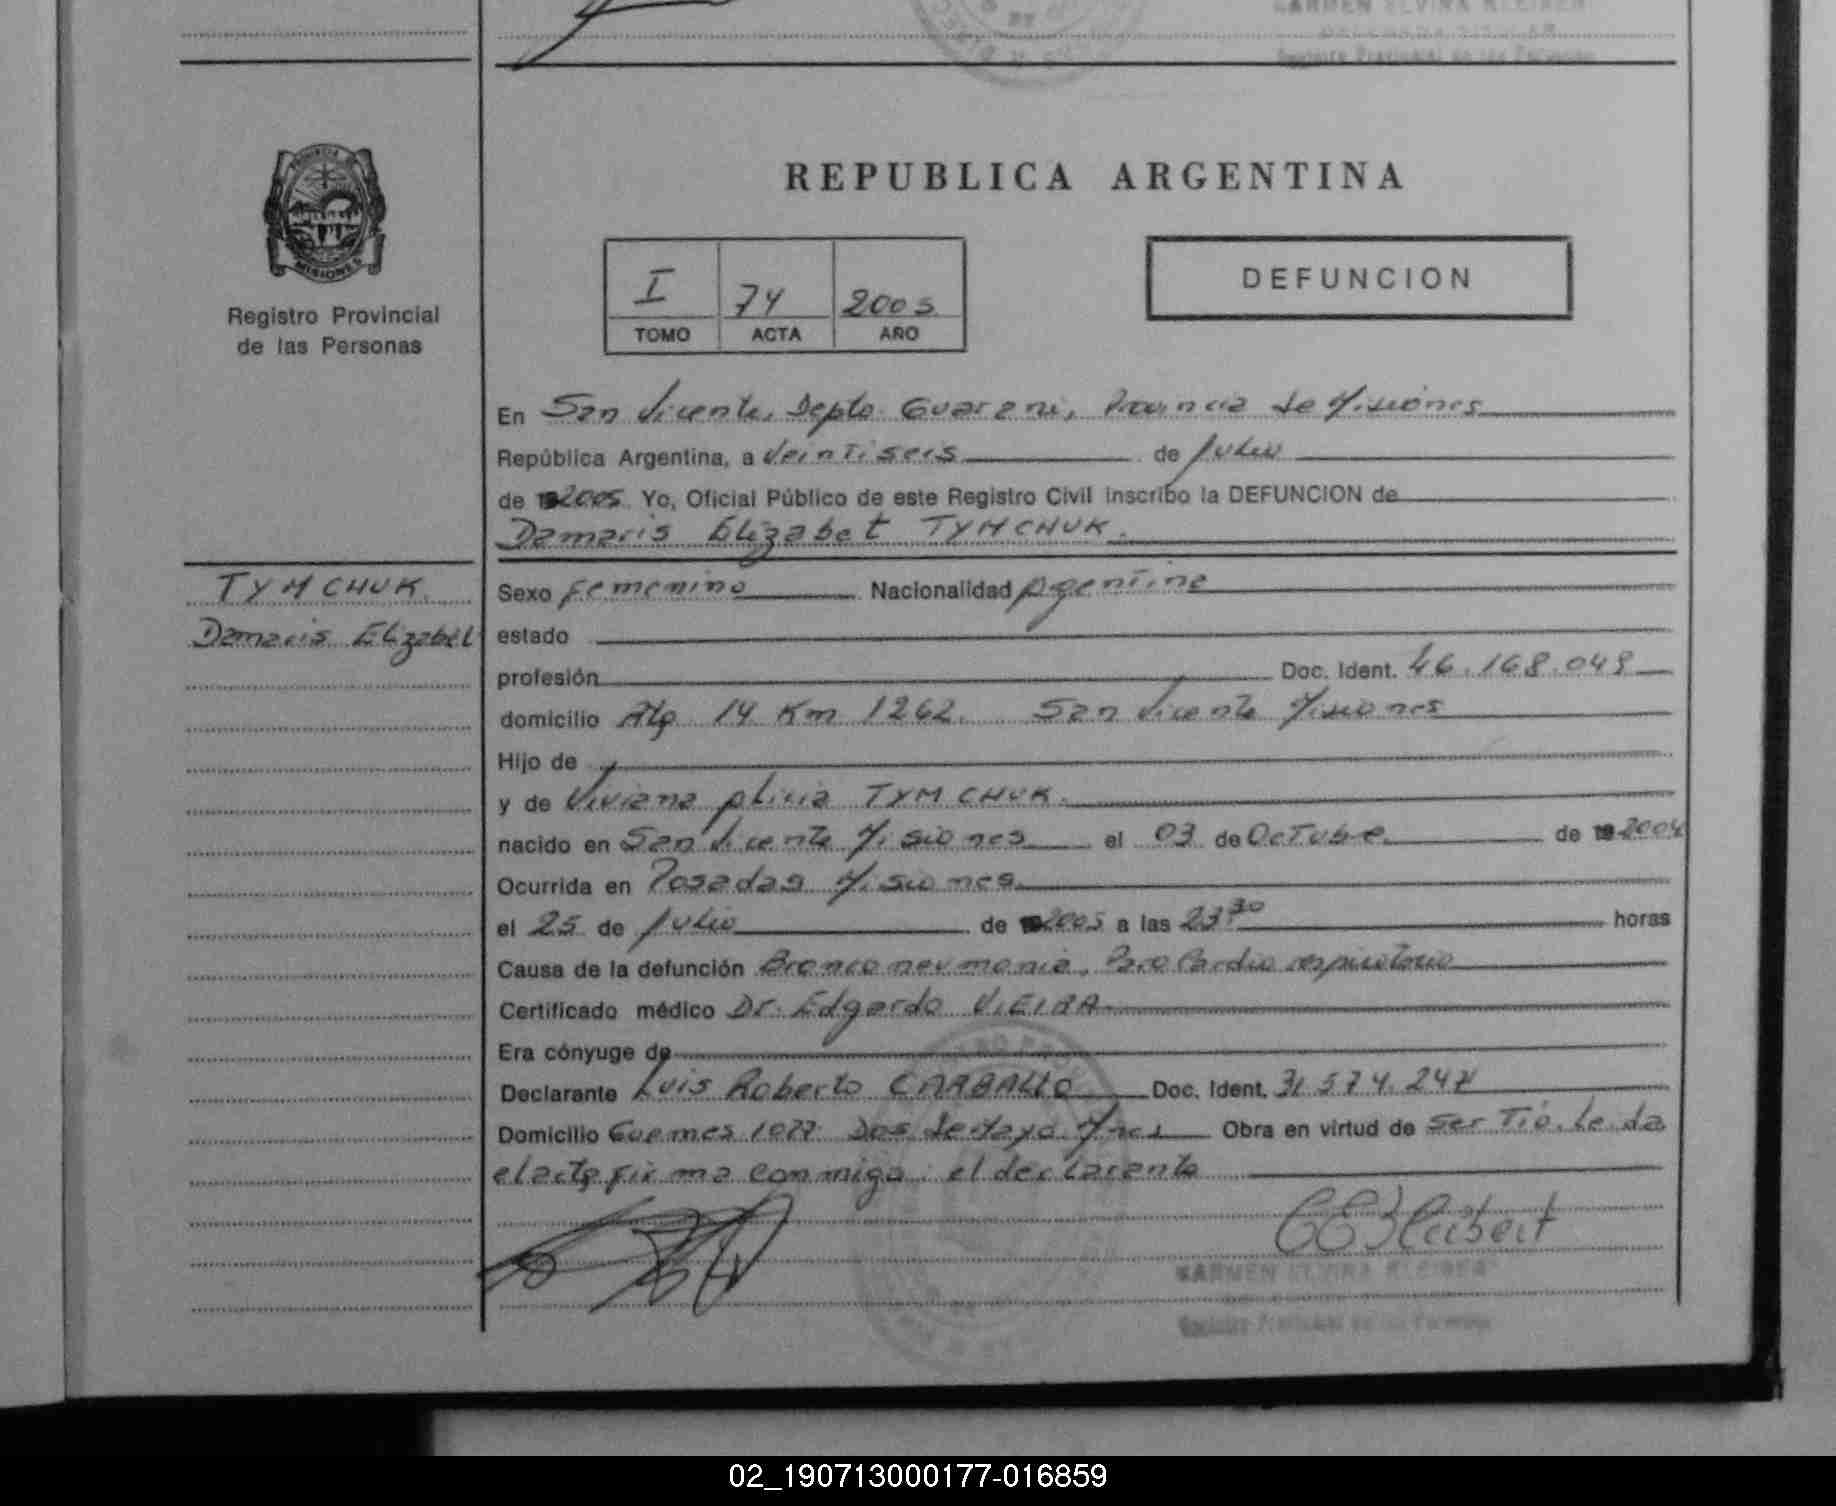 CARMEN ELVIRA KLEIBER
Registro Provincial de las Personas
PROVINCIA DE
MISIONES
Registro Provincial
de las Personas
REPUBLICA ARGENTINA
I 74 2005
TOMO ACTA AÑO
DEFUNCION
En San Vicente, Depto Guarani, Provincia de Misiones
República Argentina, a Veintiseis de Julio
de 2005. Yo, Oficial Público de este Registro Civil inscribo la DEFUNCION de
Damaris Elizabet TYMCHUK.
TYMCHUK.
Damaris Elizabet
Sexo femenino Nacionalidad Argentina
estado
profesión Doc. Ident. 46.168.049
domicilio 14 Km 1262. San Vicente Misiones
Hijo de
y de Viviana Alicia TYMCHUK.
nacido en San Vicente Misiones el 03 de Octubre de 2004
Ocurrida en Posadas Misiones
el 25 de Julio de 2005 a las 23:30 horas
Causa de la defunción Bronconeumonia, Paro Cardio respiratorio
Certificado médico Dr. Edgardo VIEIRA
Era cónyuge de
Declarante Luis Roberto CARBALLO Doc. Ident. 31.574.247
Domicilio Guemes 1077 Dos de Mayo Mnes Obra en virtud de ser Tío. Leida
el acta firma conmigo: el declarante
CARMEN ELVIRA KLEIBER
Registro Provincial de las Personas
02_190713000177-016859